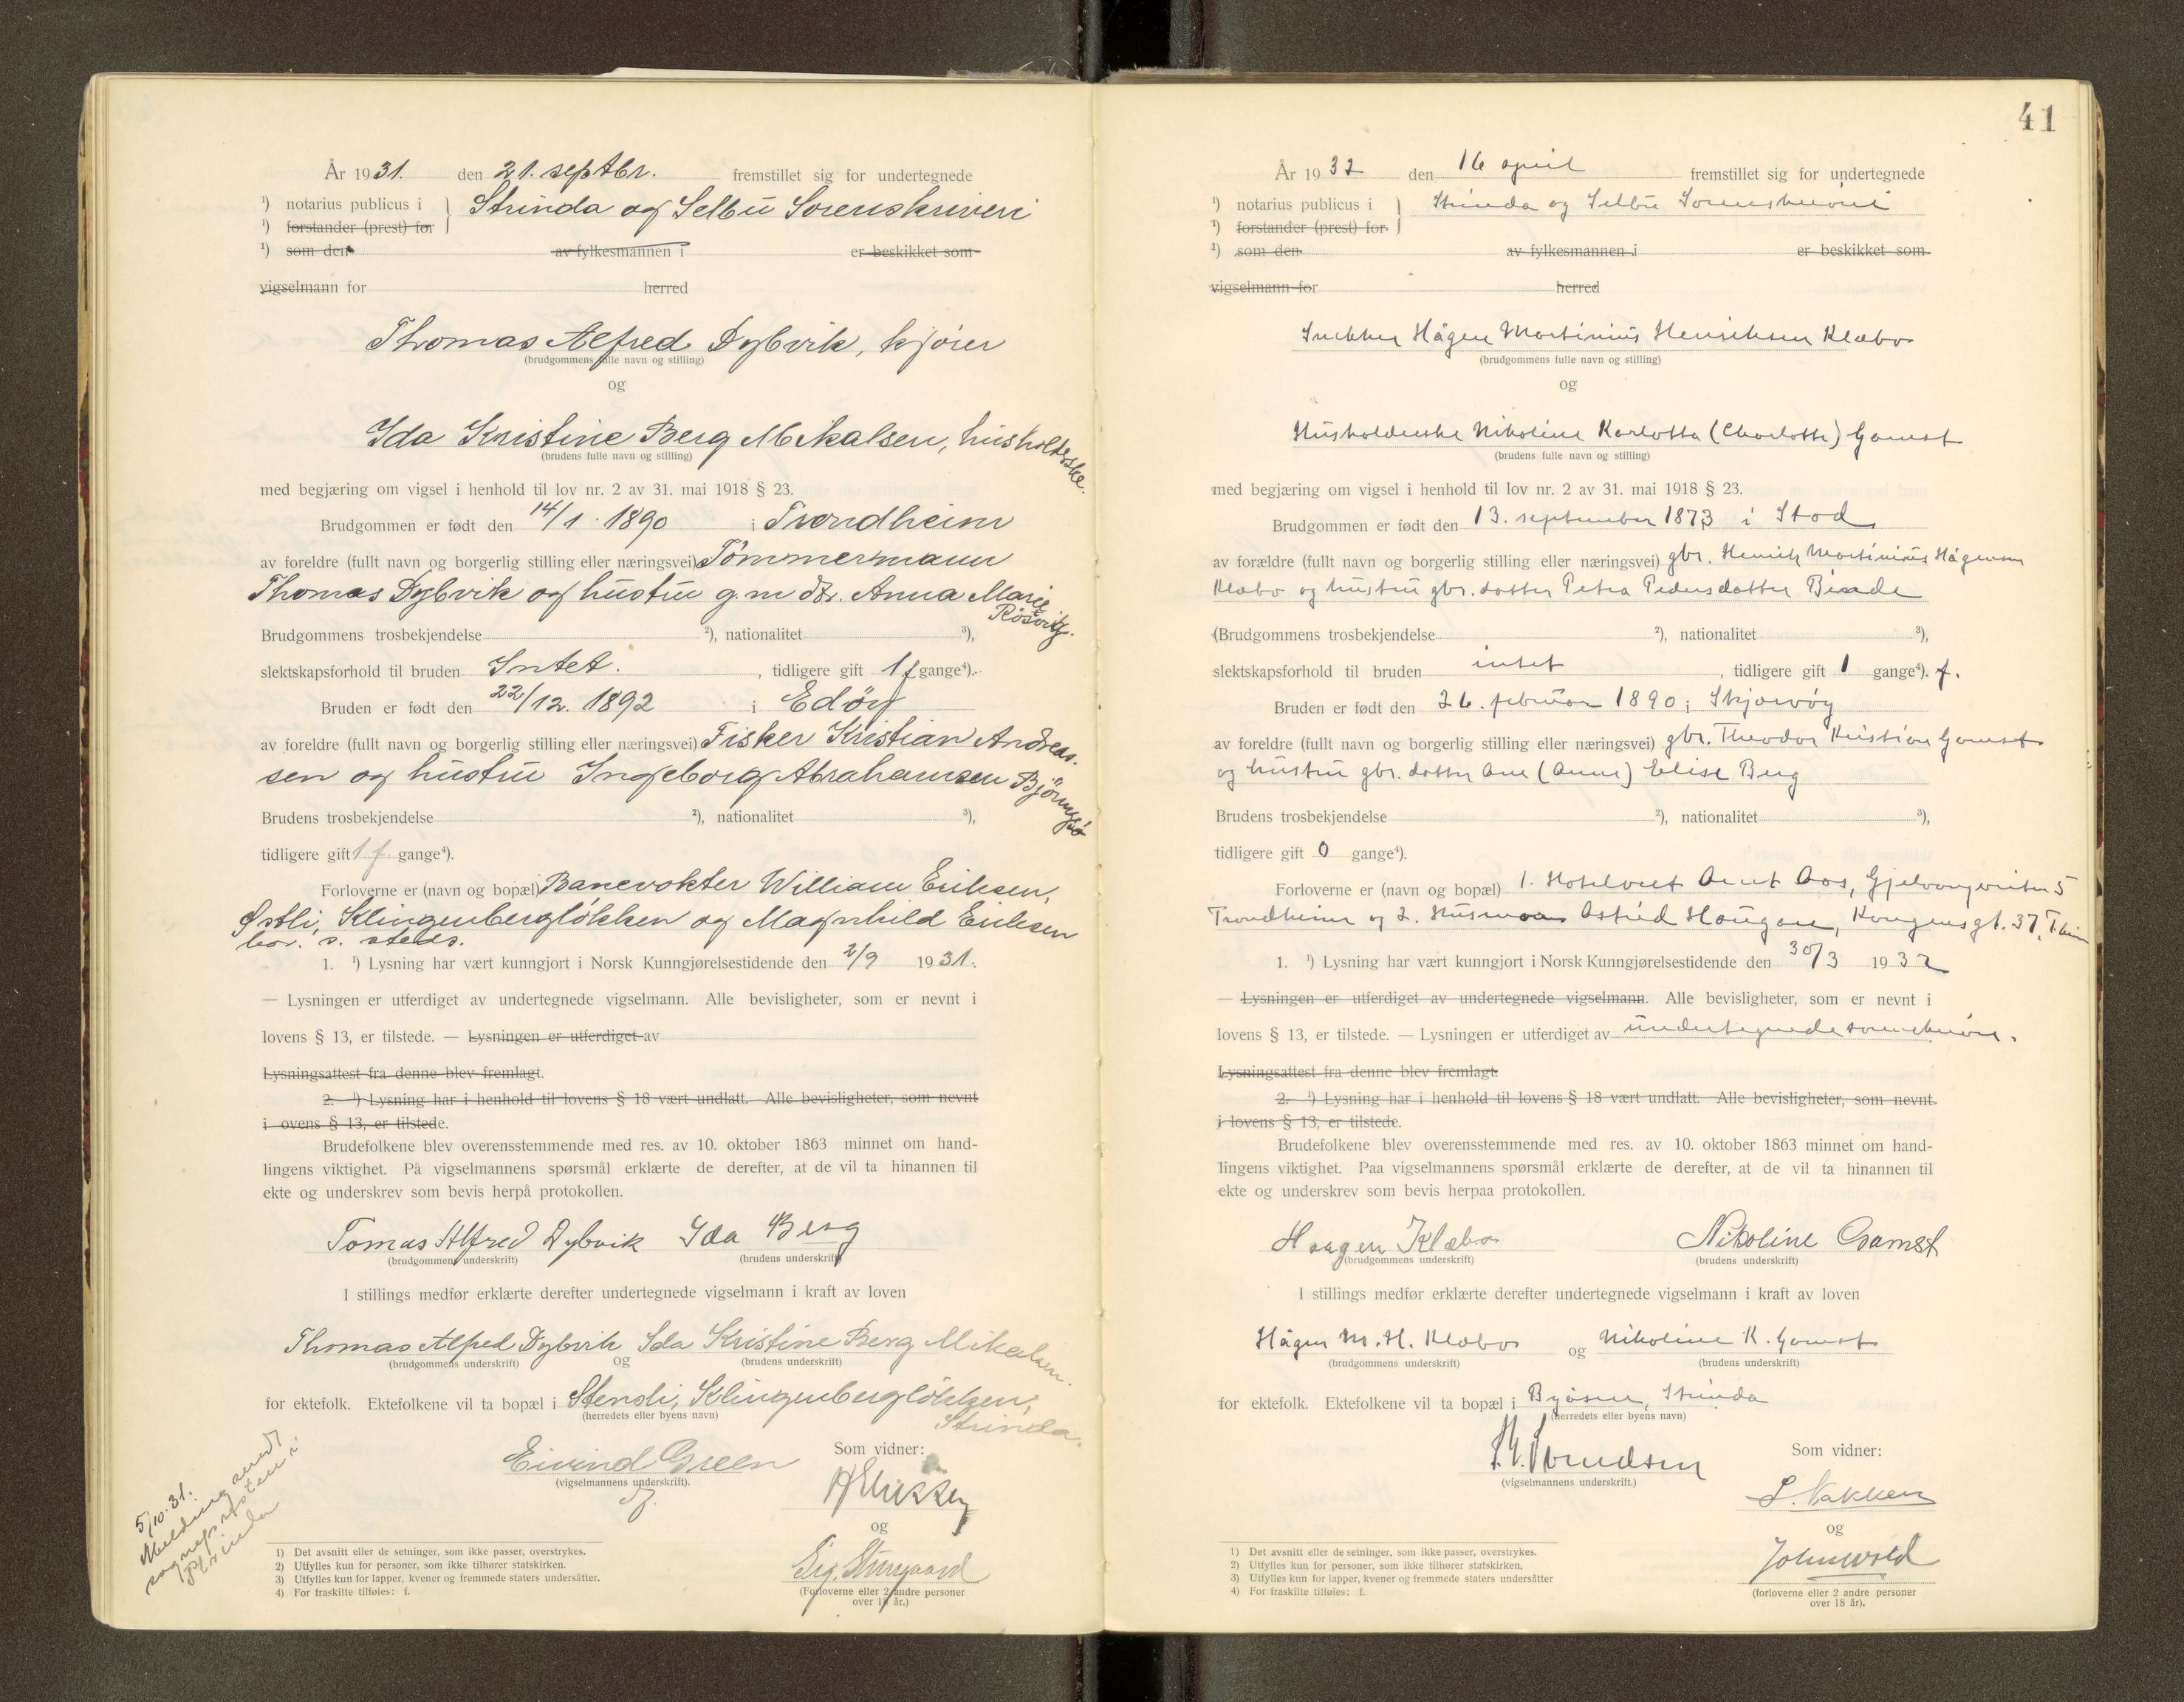 År 1931. den 21. septbr. fremstillet sig for undertegnede
¹) notarius publicus i Strinda og Selbu Sorenskriveri
¹) forstander (prest) for
¹) som den av fylkesmannen i er beskikket som
vigselmann for herred
Thomas Alfred Dybvik, kjører
(brudgommens fulle navn og stilling)
og
Ida Kristine Berg Mikalsen, husholderske.
(brudens fulle navn og stilling)
med begjæring om vigsel i henhold til lov nr. 2 av 31. mai 1918 § 23.
Brudgommen er født den 14/1. 1890 i Trondheim
av foreldre (fullt navn og borgerlig stilling eller næringsvei) Tömmermann
Thomas Dybvik og hustru g.m. dtr. Anna Marie
Rösvig.
Brudgommens trosbekjendelse ²), nationalitet ³),
slektskapsforhold til bruden Intet. , tidligere gift 1 f gange⁴).
Bruden er født den 22/12. 1892 i Edöy
av foreldre (fullt navn og borgerlig stilling eller næringsvei) Fisker Kristian Andreas-
sen og hustru Ingeborg Abrahamsen
Brudens trosbekjendelse ²), nationalitet ³),
tidligere gift 1 f. gange⁴).
Forloverne er (navn og bopæl) Banevokter William Eriksen,
Östli, Klingenberglökken og Magnhild Eriksen
bor. s. steds.
1. ¹) Lysning har vært kunngjort i Norsk Kunngjørelsestidende den 2/9 1931.
— Lysningen er utferdiget av undertegnede vigselmann. Alle bevisligheter, som er nevnt i
lovens § 13, er tilstede. — Lysningen er utferdiget av
Lysningsattest fra denne blev fremlagt.
2. ¹) Lysning har i henhold til lovens § 18 vært undlatt. Alle bevisligheter, som nevnt
i ovens § 13, er tilstede.
Brudefolkene blev overensstemmende med res. av 10. oktober 1863 minnet om hand-
lingens viktighet. På vigselmannens spørsmål erklærte de derefter, at de vil ta hinannen til
ekte og underskrev som bevis herpå protokollen.
Tomas Alfred Dybvik Ida Berg
(brudgommens underskrift) (brudens underskrift)
I stillings medfør erklærte derefter undertegnede vigselmann i kraft av loven
Thomas Alfred Dybvik Ida Kristine Berg Mikalsen.
(brudgommens underskrift) og (brudens underskrift)
for ektefolk. Ektefolkene vil ta bopæl i Stensli, Klingenberglökken,
(herredets eller byens navn) Strinda.
Eivind Green Som vidner:
(vigselmannens underskrift).
og
(Forloverne eller 2 andre personer
over 18 år.)
5/10.31.
Melding sendt
sognepresten i
Strinda
1) Det avsnitt eller de setninger, som ikke passer, overstrykes.
2) Utfylles kun for personer, som ikke tilhører statskirken.
3) Utfylles kun for lapper, kvener og fremmede staters undersåtter.
4) For fraskilte tilføies: f.
41
År 1932 den 16 april fremstillet sig for undertegnede
¹) notarius publicus i Strinda og Selbu Sorenskriveri
¹) forstander (prest) for
¹) som den av fylkesmannen i er beskikket som
vigselmann for herred
Snekker Hågen Martinius Henriksen Klæbo
(brudgommens fulle navn og stilling)
og
Husholderske Nikoline Karlotta (Charlotte) Gamst
(brudens fulle navn og stilling)
med begjæring om vigsel i henhold til lov nr. 2 av 31. mai 1918 § 23.
Brudgommen er født den 13. september 1873 i Stod
av foreldre (fullt navn og borgerlig stilling eller næringsvei) gbr. Henrik Martinius Hågensen
Klæbo og hustru gbr. datter Petra Pedersdatter Binde
(Brudgommens trosbekjendelse ²), nationalitet ³),
slektskapsforhold til bruden intet , tidligere gift 1 gange⁴). f.
Bruden er født den 26. februar 1890 i Skjervöy
av foreldre (fullt navn og borgerlig stilling eller næringsvei) gbr. Theodor Kristian Gamst
og hustru gbr. datter Ane (Anne) Elise Berg
Brudens trosbekjendelse ²), nationalitet ³),
tidligere gift 0 gange⁴).
Forloverne er (navn og bopæl) 1. Hotelvert Arnt Aas, 5
Trondheim og 2. Astrid Haugan, Kongensgt. 37, T.heim
1. ¹) Lysning har vært kunngjort i Norsk Kunngjørelsestidende den 30/3 1932
— Lysningen er utferdiget av undertegnede vigselmann. Alle bevisligheter, som er nevnt i
lovens § 13, er tilstede. — Lysningen er utferdiget av undertegnede sorenskriver.
Lysningsattest fra denne blev fremlagt.
2. ¹) Lysning har i henhold til lovens § 18 vært undlatt. Alle bevisligheter, som nevnt
i lovens § 13, er tilstede.
Brudefolkene blev overensstemmende med res. av 10. oktober 1863 minnet om hand-
lingens viktighet. Paa vigselmannens spørsmål erklærte de derefter, at de vil ta hinannen til
ekte og underskrev som bevis herpaa protokollen.
Haagen Klæbo Nikoline Gamst
(brudgommens underskrift) (brudens underskrift)
I stillings medfør erklærte derefter undertegnede vigselmann i kraft av loven
Hågen M. H. Klæbo og Nikoline K. Gamst
(brudgommens underskrift) (brudens underskrift)
for ektefolk. Ektefolkene vil ta bopæl i Byåsen, Strinda
(herredets eller byens navn)
Som vidner:
(vigselmannens underskrift.)
L. Nakken
og
(forloverne eller 2 andre personer
over 18 år).
1) Det avsnitt eller de setninger, som ikke passer, overstrykes.
2) Utfylles kun for personer, som ikke tilhører statskirken.
3) Utfylles kun for lapper, kvener og fremmede staters undersåtter
4) For fraskilte tilføies: f.